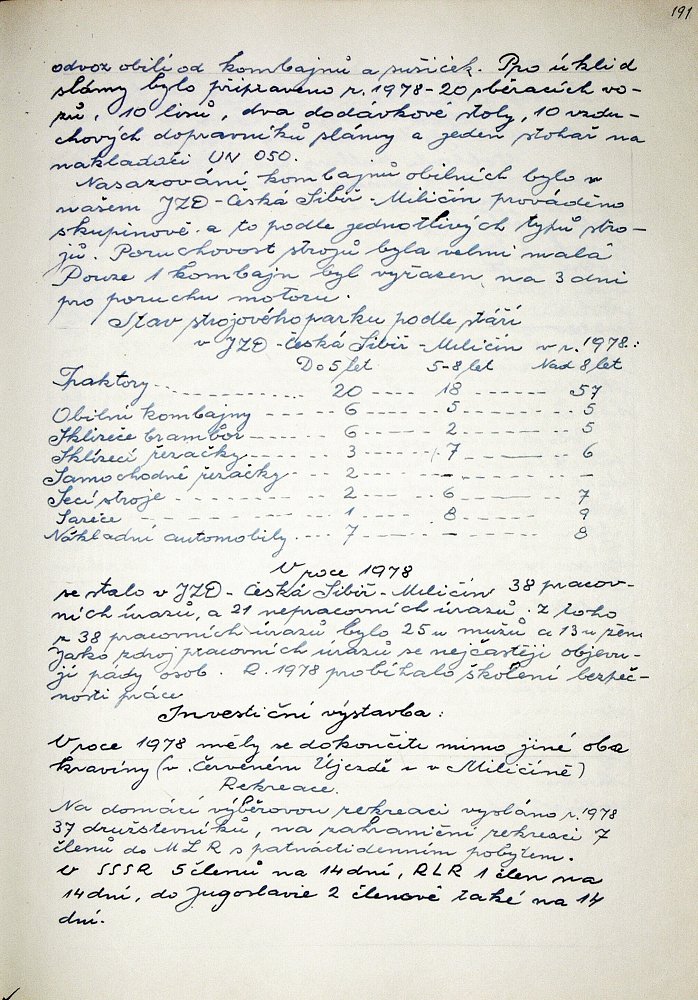 191
odvoz obilí od kombajnů a sušiček. Pro úklid
slámy bylo připraveno r. 1978 - 20 sběracích vo-
zů, 10 lisů, dva dodávkové stoly, 10 vzdu-
chových dopravníků slámy a jeden stohař na
nakladači UN 050.
Nasazování kombajnů obilních bylo v
našem JZD - Česká Sibiř - Miličín prováděno
skupinově a to podle jednotlivých typů stro-
jů. Poruchovost strojů byla velmi malá
Pouze 1 kombajn byl vyřazen na 3 dni
pro poruchu motoru.
Stav strojového parku podle stáří
v JZD - Česká Sibiř - Miličín v r. 1978:
Do 5 let 5-8 let Nad 8 let
Traktory 20 18 57
Obilní kombajny 6 5 5
Sklizeče brambor 6 2 5
Sklízecí řezačky 3 7 6
Samochodné řezačky 2 - -
Secí stroje 2 6 7
Sazeče 1 8 9
Nákladní automobily 7 - 8
V roce 1978
se stalo v JZD - Česká Sibiř - Miličín 38 pracov-
ních úrazů, a 21 nepracovních úrazů. Z toho
z 38 pracovních úrazů bylo 25 u mužů a 13 u žen
Jako zdroj pracovních úrazů se nejčastěji objevu-
jí pády osob. R. 1978 probíhalo školení bezpeč-
nosti práce
Investiční výstavba:
V roce 1978 měly se dokončiti mimo jiné oba
kravíny (v Červeném Újezdě a v Miličíně)
Rekreace.
Na domácí výběrovou rekreaci vysláno r. 1978
37 družstevníků, na zahraniční rekreaci 7
členů do MLR s patnáctidenním pobytem.
V SSSR 5 členů na 14 dní, RLR 1 člen na
14 dní, do Jugoslavie 2 členové také na 14
dní.